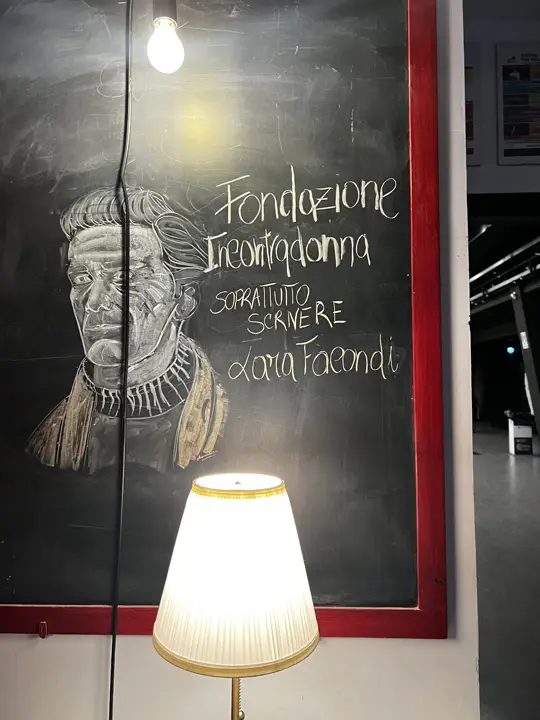 Fondazione
Incontradonna
SOPRATTUTTO
SCRIVERE
Lara Facondi